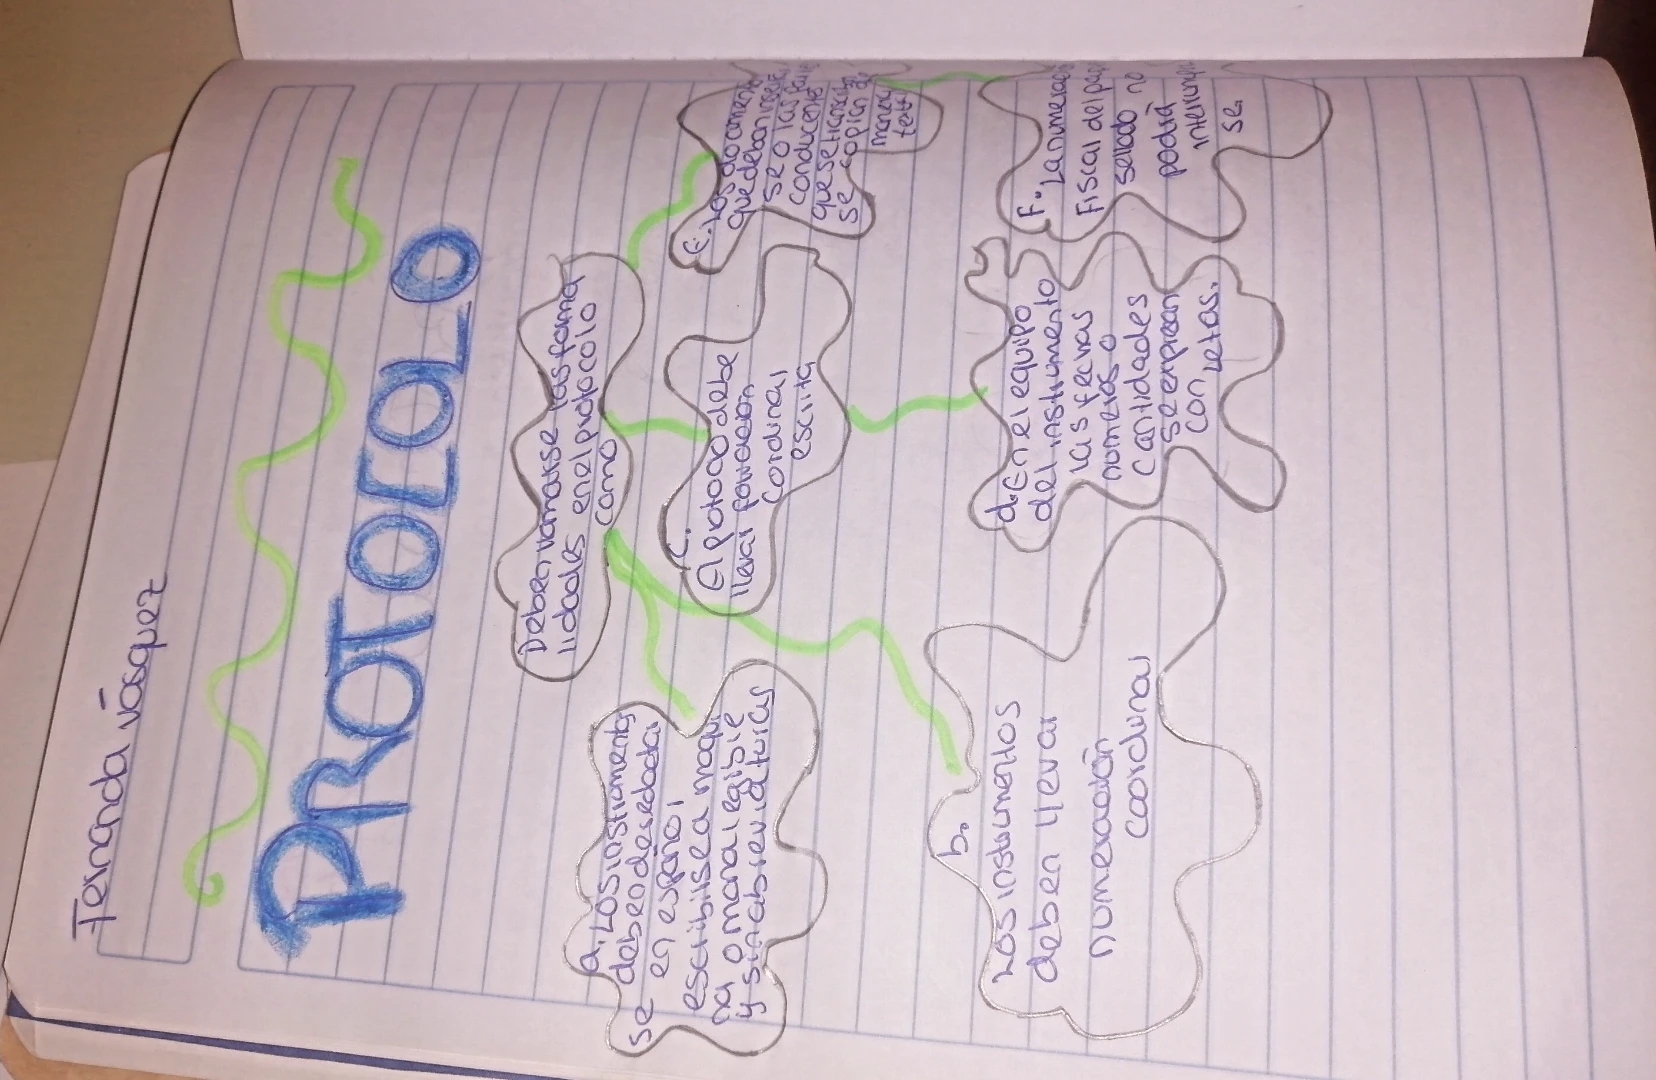 Fernanda Vásquez
PROTOCOLO
Deben llenarse las forma
lidades en el protocolo
como
a. Los instrumentos
se deben de redactar
en español
escribirse a maqui
na o mano legible
y sin abreviaturas
b.
Los instrumentos
deben llevar
numeración
coordinal
c.
El protocolo debe
llevar
cordinal
escrita
d. En el equipo
del instrumento
las fechas
numeros o
cantidades
se expresan
con letras.
E. Los documento
que deban inserta
se o las
conducente
que se transcribe
se copian de
manera
textu
F. La numerac
Fiscal del pap
sellado no
podrá
interrumpi
se.